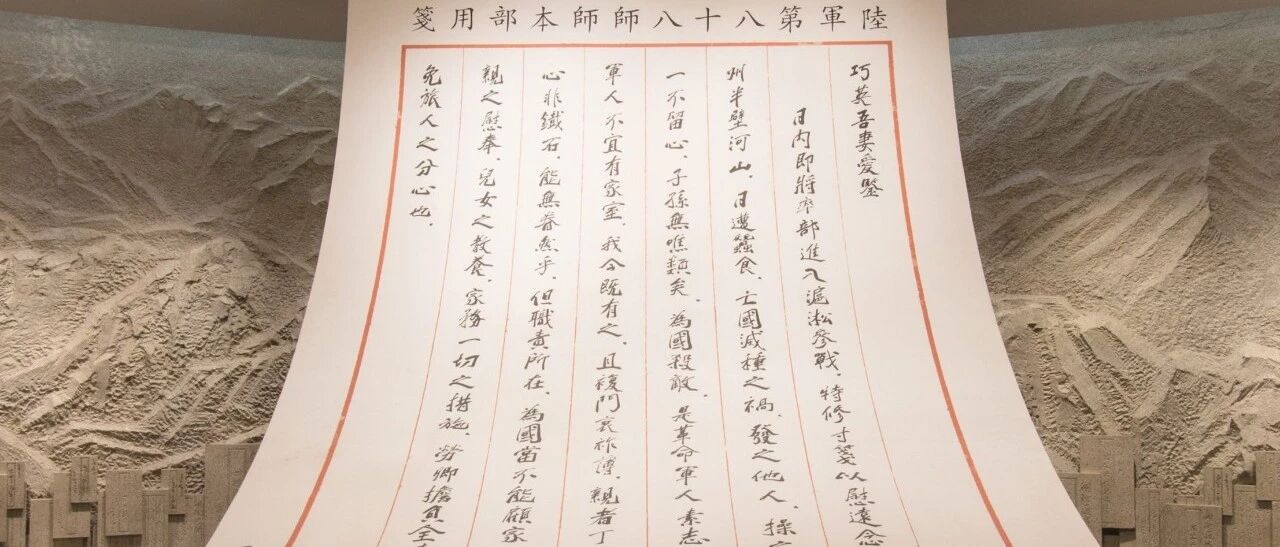 陸軍第八十八師師本部用箋
巧英吾妻愛鑒
日內即將率部進入滬淞參戰，特修寸箋以慰遠念
州半壁河山，日遭蠶食，亡國滅種之禍，發之他人，操
一不留心，子孫無噍類矣，為國殺敵，是革命軍人素志
軍人不宜有家室，我今既有之，且複門衰祚薄，親者丁
心非鐵石，能無眷然乎，但職責所在，為國當不能顧家
親之慰奉，兒女之教養，家務一切之措施，勞卿擔負全
免旅人之分心也，